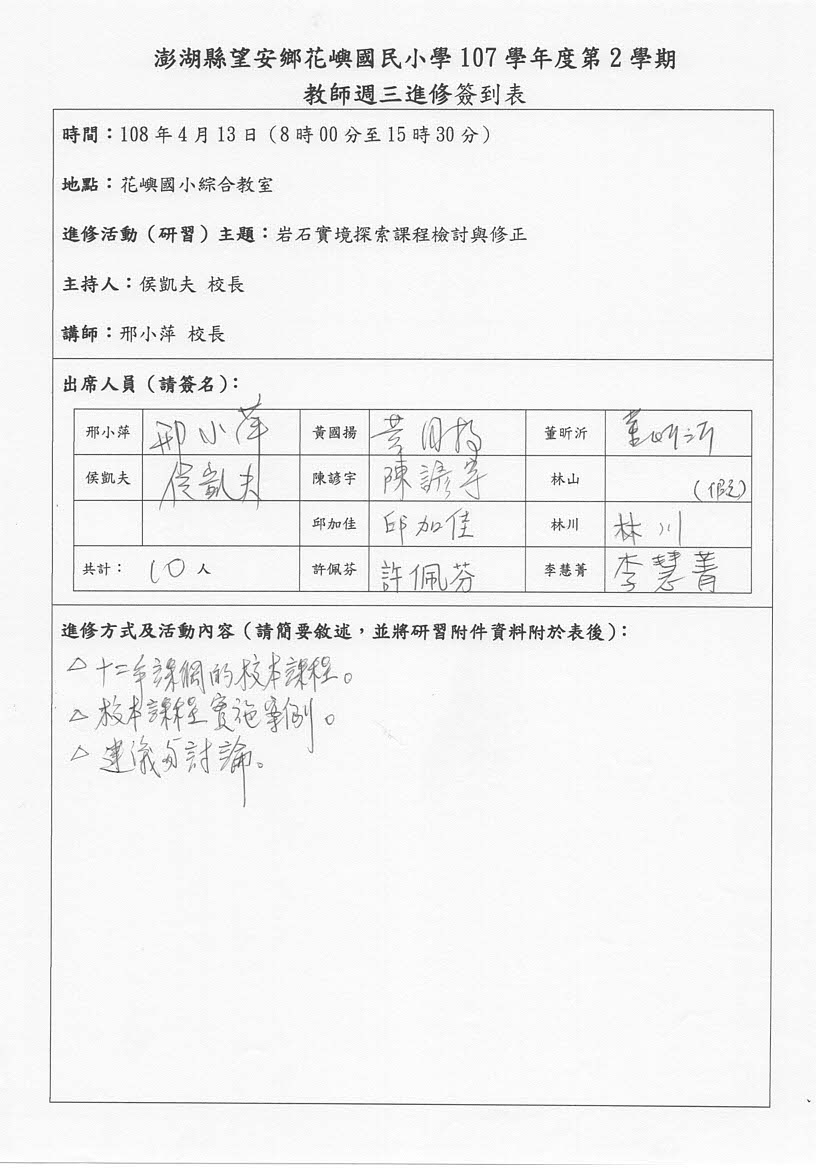 澎湖縣望安鄉花嶼國民小學 107 學年度第 2 學期
教師週三進修簽到表
時間：108 年 4 月 13 日（8 時 00 分至 15 時 30 分）
地點：花嶼國小綜合教室
進修活動（研習）主題：岩石實境探索課程檢討與修正
主持人：侯凱夫 校長
講師：邢小萍 校長
出席人員（請簽名）：
邢小萍 邢小萍 黃國揚 黃国揚 董昕沂 董昕沂
侯凱夫 侯凱夫 陳諺宇 陳諺宇 林山 （假）
邱加佳 邱加佳 林川 林川
共計： 10 人 許佩芬 許佩芬 李慧菁 李慧菁
進修方式及活動內容（請簡要敘述，並將研習附件資料附於表後）：
△十二年課綱的校本課程。
△校本課程實施案例。
△建議与討論。